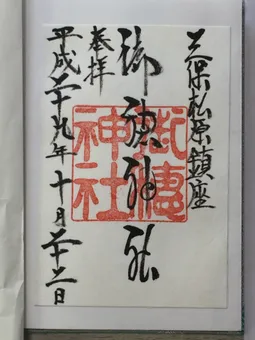 三保松原鎮座
奉拝
御穂神社
御穂神社
平成二十九年十月二十二日